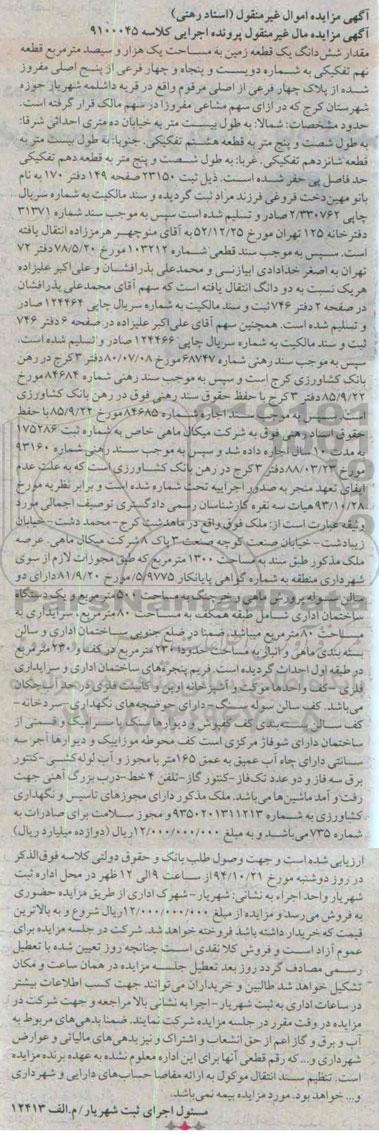 آگهی مزایده اموال غیرمنقول (اسناد رهنی)
آگهی مزایده مال غیرمنقول پرونده اجرایی کلاسه ۹۱۰۰۰۴۵
مقدار شش دانگ یک قطعه زمین به مساحت یک هزار و سیصد مترمربع قطعه
نهم تفکیکی به شماره دویست و پنجاه و چهار فرعی از پنج اصلی مفروز
شده از پلاک چهار فرعی از اصلی مرقوم واقع در قریه داشلمه شهریار حوزه
شهرستان کرج که در ازای سهم مشاعی مفروزا در سهم مالک قرار گرفته است.
حدود مشخصات: شمالا: به طول بیست متر به خیابان ده متری احداثی شرقا:
به طول شصت و پنج متر به قطعه هشتم تفکیکی. جنوبا: به طول بیست متر به
قطعه شانزدهم تفکیکی. غربا: به طول شصت و پنج متر به قطعه دهم تفکیکی
حد فاصل پی حفر شده است. ذیل ثبت ۲۳۱۵۰ صفحه ۱۴۹ دفتر ۱۷۰ به نام
بانو مهین دخت فروغی فرزند مراد ثبت گردیده و سند مالکیت به شماره سریال
چاپی ۲/۳۳۰۷۶۲ صادر و تسلیم شده است سپس به موجب سند شماره ۳۱۳۷۱
دفترخانه ۱۲۵ تهران مورخ ۵۲/۱۲/۲۵ به آقای منوچهر هرمززاده انتقال یافته
است. سپس به موجب سند قطعی شماره ۱۰۳۲۱۲ مورخ ۷۸/۵/۲۰ دفتر ۷۲
تهران به اصغر خدادادی ابیازنی و محمدعلی بذرافشان و علی اکبر علیزاده
هریک نسبت به دو دانگ انتقال یافته است که سهم آقای محمدعلی بذرافشان
در صفحه ۲ دفتر ۷۴۶ ثبت و سند مالکیت به شماره سریال چاپی ۱۲۴۴۶۴ صادر
و تسلیم شده است. همچنین سهم آقای علی اکبر علیزاده در صفحه ۶ دفتر ۷۴۶
ثبت و سند مالکیت به شماره سریال چاپی ۱۲۴۴۶۶ صادر و تسلیم شده است.
سپس به موجب سند رهنی شماره ۶۸۷۴۷ مورخ ۸۰/۰۷/۰۸ دفتر ۳ کرج در رهن
بانک کشاورزی کرج است و سپس به موجب سند رهنی شماره ۸۴۶۸۴ مورخ
۸۵/۹/۲۲ دفتر ۳ کرج با حفظ حقوق سند رهنی فوق در رهن بانک کشاورزی
است سپس به موجب سند اجاره شماره ۸۴۶۸۵ مورخ ۸۵/۹/۲۲ با حفظ
حقوق اسناد رهنی فوق به شرکت میکال ماهی خاص به شماره ثبت ۱۷۵۲۸۶
به مدت ۱۰ سال اجاره داده شد و سپس به موجب سند رهنی شماره ۹۳۱۶۰
مورخ ۸۸/۰۳/۲۳ دفتر ۳ کرج در رهن بانک کشاورزی است که به علت عدم
ایفای تعهد منجر به صدور اجراییه تحت شماره شده است و برابر نظریه مورخ
۹۳/۱۰/۲۸ هیات سه نفره کارشناسان رسمی دادگستری توصیف اجمالی مورد
وثیقه عبارت است از: ملک فوق واقع در ماهدشت کرج- محمد دشت- خیابان
زیبادشت- خیابان صنعت کوچه صنعت ۳ پاک ۸ شرکت میکال ماهی. عرصه
ملک مذکور طبق سند به مساحت ۱۳۰۰ مترمربع که طبق مجوزات لازم از سوی
شهرداری منطقه به شماره گواهی پایانکار ۵/۹۷۷۵ مورخ ۸۱/۹/۲۰ دارای دو
سالن سوله پرورش ماهی ریخرچنگ به مساحت ۵۰۰ مترمربع و یک دستگاه
ساختمان اداری شامل طبقه همکف به مساحت ۸۰ مترمربع، سرایداری به
مساحت ۸۰ مترمربع میباشد. ضمنا در ضلع جنوبی ساختمان اداری و سالن
بسته بندی ماهی و انبار به مساحت حدودا ۲۳۰ مترمربع در کف و ۲۳۰ مترمربع
در طبقه اول احداث گردیده است. فریم پنجره های ساختمان اداری و سرایداری
فلزی - کف واحدها موکت و آشپزخانه اوپن و کابینت فلزی در حد آب چکان
می باشد. کف سالن سوله سنگ- دارای حوضچه های نگهداری- سردخانه-
کف سالن بسته بندی کف کفپوش و دیوارها سنگ یا سرامیک و قسمتی از
ساختمان دارای شوفاژ مرکزی است کف محوطه موزاییک و دیوارها آجر سه
سانتی دارای چاه آب عمیق به عمق ۱۶۵ متر با مجوز و آب لوله کشی-کنتور
برق سه فاز و دو عدد تک فاز- کنتور گاز- تلفن ۴ خط- درب بزرگ آهنی جهت
رفت و آمد ماشین ها می باشد. ملک مذکور دارای مجوزهای تاسیس و نگهداری
کشاورزی به شماره ۹۳۵۰۲۰۱۳۱۱۲۱۳ و مجوز سلامت برای صادرات به
شماره ۷۳۵ می باشد و به مبلغ ۱۲/۰۰۰/۰۰۰/۰۰۰ ریال (دوازده میلیارد ریال)
ارزیابی شده است و جهت وصول طلب بانک و حقوق دولتی کلاسه فوق الذکر
در روز دوشنبه مورخ ۹۴/۱۰/۲۱ از ساعت ۹ الی ۱۲ ظهر در محل اداره ثبت
شهریار واحد اجراء به نشانی: شهریار- شهرک اداری از طریق مزایده حضوری
به فروش می رسد و مزایده از مبلغ ۱۲/۰۰۰/۰۰۰/۰۰۰ ریال شروع و به بالاترین
قیمت که خریدار داشته باشد فروخته خواهد شد. شرکت در جلسه مزایده برای
عموم آزاد است و فروش کلا نقدی است چنانچه روز تعیین شده با تعطیل
رسمی مصادف گردد روز بعد تعطیل جلسه مزایده در همان ساعت و مکان
تشکیل خواهد شد طالبین و خریداران می توانند جهت کسب اطلاعات بیشتر
در ساعات اداری به ثبت شهریار- اجرا به نشانی بالا مراجعه و جهت شرکت در
مزایده در وقت مقرر در جلسه مزایده شرکت نمایند. ضمنا بدهی های مربوط به
آب و برق و گاز اعم از حق انشعاب و اشتراک و نیز بدهی های مالیاتی و عوارض
شهرداری و... که رقم قطعی آنها برای این اداره معلوم نشده به عهده برنده مزایده
است. تنظیم سند انتقال موکول به ارائه مفاصا حساب های دارایی و شهرداری
و... خواهد بود. مورد مزایده بیمه نمی باشد.
مسئول اجرای ثبت شهریار/م.الف ۱۲۴۱۳